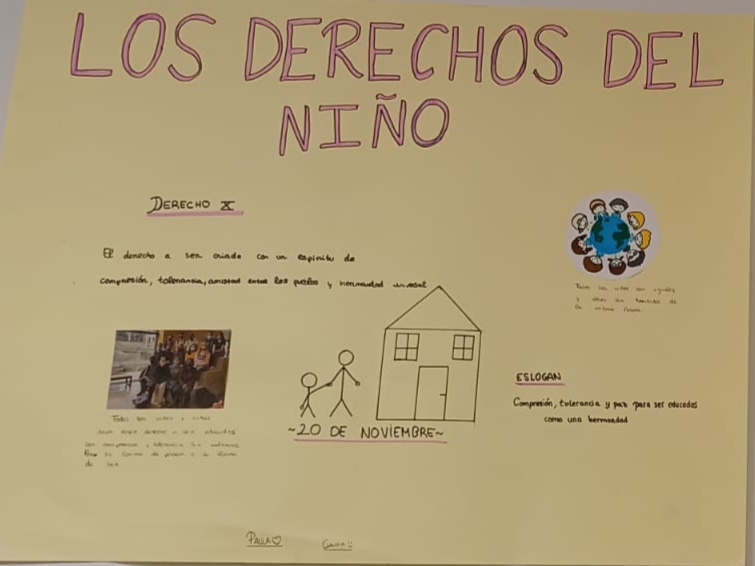 LOS DERECHOS DEL
NIÑO
DERECHO X
El derecho a ser criado con un espíritu de
compresión, tolerancia, amistad entre los pueblos y hermandad universal
Todos los niños son iguales
y
la misma
ESLOGAN
Compresión, tolerancia y paz para ser educados
como una hermandad
Todos los niños y niñas
derecho a ser educados
con comprensión y tolerancia
forma de pensar o su forma
de ser.
~20 DE NOVIEMBRE~
PAULA♡